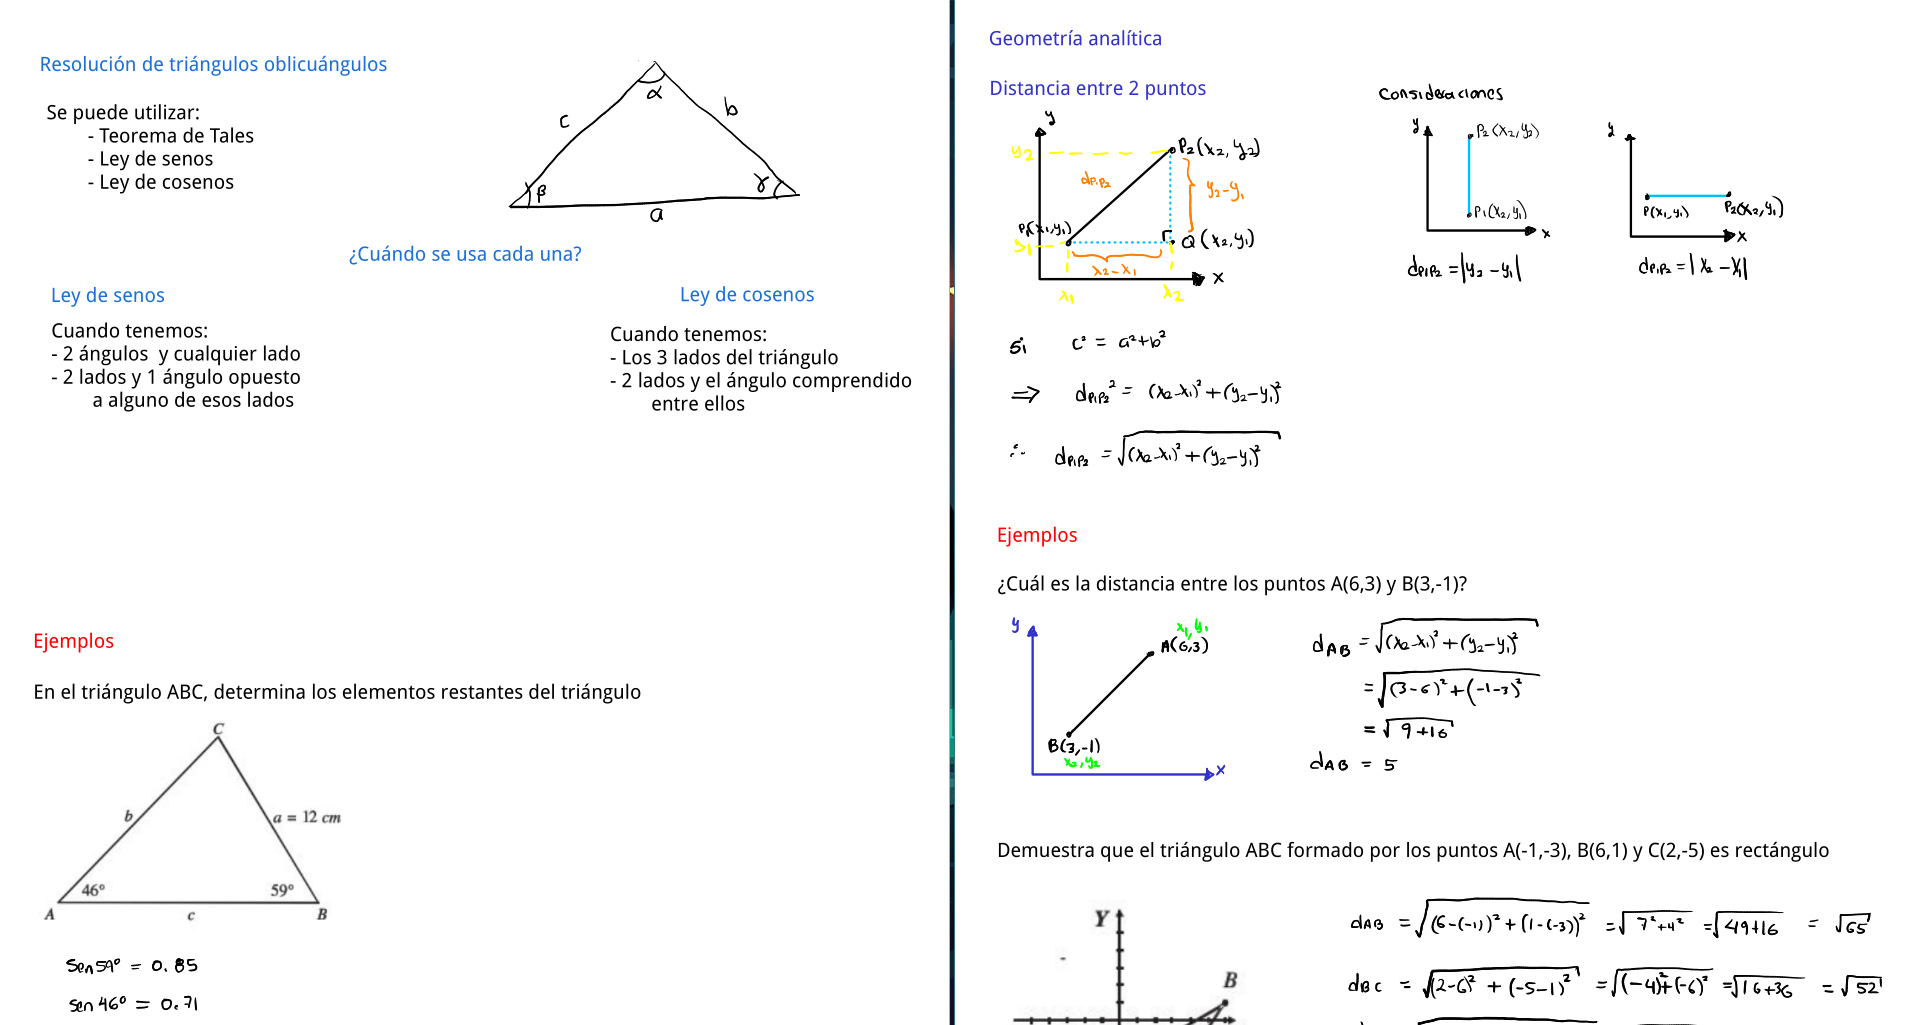 Resolución de triángulos oblicuángulos
Se puede utilizar:
- Teorema de Tales
- Ley de senos
- Ley de cosenos
α
c
b
β
γ
a
¿Cuándo se usa cada una?
Ley de senos
Cuando tenemos:
- 2 ángulos y cualquier lado
- 2 lados y 1 ángulo opuesto
a alguno de esos lados
Ley de cosenos
Cuando tenemos:
- Los 3 lados del triángulo
- 2 lados y el ángulo comprendido
entre ellos
Ejemplos
En el triángulo ABC, determina los elementos restantes del triángulo
C
b
a = 12 cm
46°
59°
A
c
B
Sen 59° = 0.85
sen 46° = 0.71
Geometría analítica
Distancia entre 2 puntos
y
y₂
P₂(x₂, y₂)
dP₁P₂
y₂-y₁
P₁(x₁,y₁)
y₁
Q (x₂,y₁)
x₂-x₁
x
x₁
x₂
Consideraciones
y
P₂(x₂,y₂)
P₁(x₂,y₁)
x
dP₁P₂ = |y₂ - y₁|
y
P(x₁,y₁)
P₂(x₂,y₁)
x
dP₁P₂ = |x₂ - x₁|
Si c² = a²+b²
⇒ dP₁P₂² = (x₂-x₁)² + (y₂-y₁)²
∴ dP₁P₂ = √(x₂-x₁)² + (y₂-y₁)²
Ejemplos
¿Cuál es la distancia entre los puntos A(6,3) y B(3,-1)?
y
x₁, y₁
A(6,3)
B(3,-1)
x₂, y₂
x
dAB = √(x₂-x₁)² + (y₂-y₁)²
= √(3-6)² + (-1-3)²
= √9+16
dAB = 5
Demuestra que el triángulo ABC formado por los puntos A(-1,-3), B(6,1) y C(2,-5) es rectángulo
Y
B
dAB = √(6-(-1))² + (1-(-3))² = √7²+4² = √49+16 = √65
dBC = √(2-6)² + (-5-1)² = √(-4)²+(-6)² = √16+36 = √52